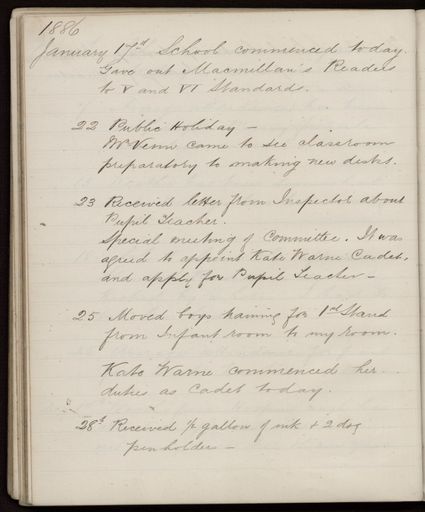 1886
January 17d School commenced today.
Gave out Macmillan's Readers
to V and VI Standards.
22 Public Holiday —
Mr Venn came to see classroom
preparatory to making new desks.
23 Received letter from Inspector about
Pupil Teacher.
Special meeting of Committee. It was
agreed to appoint Kate Warne Cadet,
and apply for Pupil Teacher —
25 Moved boys training for 1st Stand
from Infant room to my room.
Kate Warne commenced her
duties as Cadet today.
28t Received gallon of ink + 2 doz
penholder —